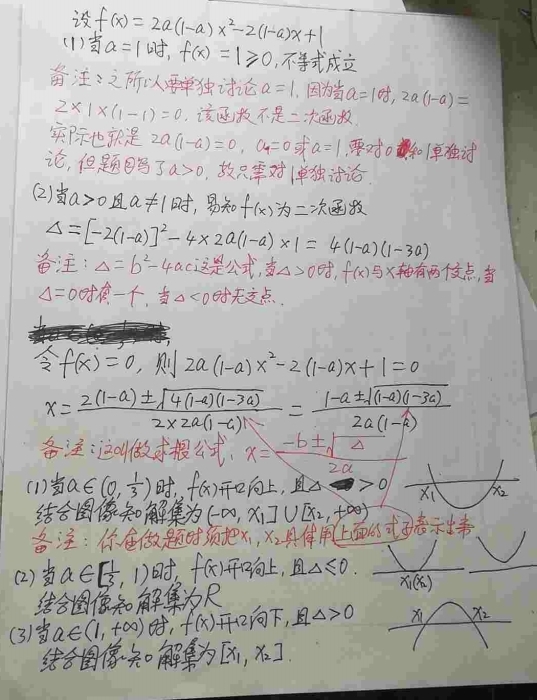 设f(x)=2a(1-a)x²-2(1-a)x+1
(1)当a=1时,f(x)=1≥0,不等式成立
备注:之所以要单独讨论a=1,因为当a=1时,2a(1-a)=
2×1×(1-1)=0.该函数不是二次函数.
实际也就是2a(1-a)=0,a=0或a=1,要对0和1单独讨
论,但题目写了a>0,故只需对1单独讨论.
(2)当a>0且a≠1时,易知f(x)为二次函数
△=[-2(1-a)]²-4×2a(1-a)×1=4(1-a)(1-3a)
备注:△=b²-4ac这是公式,当△>0时,f(x)与x轴有两个交点,当
△=0时有一个,当△<0时无交点.
令f(x)=0,则2a(1-a)x²-2(1-a)x+1=0
x=2(1-a)±√4(1-a)(1-3a)/2×2a(1-a)=1-a±√(1-a)(1-3a)/2a(1-a)
备注:这叫做求根公式,x=-b±√△/2a
(1)当a∈(0,1/3)时,f(x)开口向上,且△>0
x₁ x₂
结合图像知解集为(-∞,x₁]∪[x₂,+∞)
备注:你在做题时须把x₁,x₂具体用上面的式子表示出来
(2)当a∈[1/3,1)时,f(x)开口向上,且△≤0.
x₁(x₂)
结合图像知解集为R
(3)当a∈(1,+∞)时,f(x)开口向下,且△>0
x₁ x₂
结合图像知解集为[x₁,x₂].